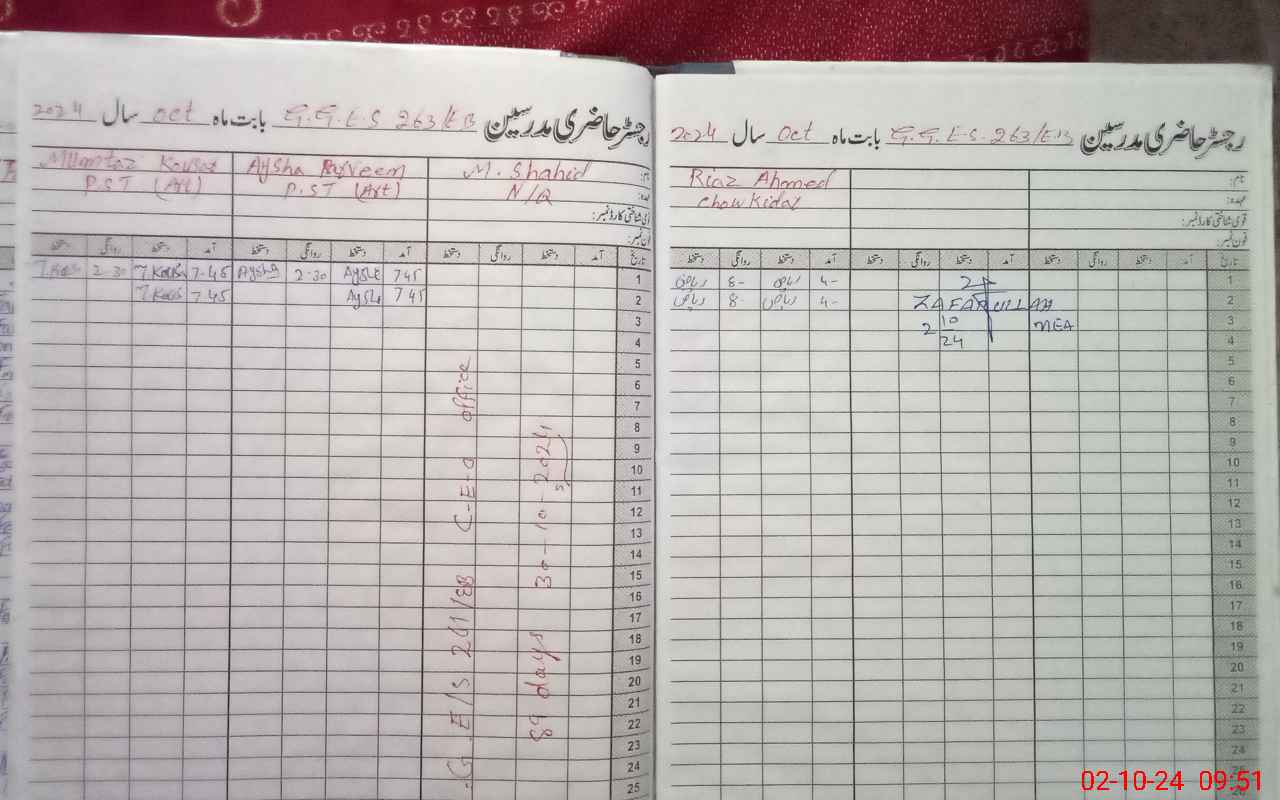 رجسٹر حاضری مدرسین G.G.E.S 263/EB بابت ماہ oct سال 2024
نام: M. Shahid Aysha Parveen Mumtaz Kousar
عہدہ: N/Q P.ST (Art) P.ST (Art)
قومی شناختی کارڈ نمبر:
فون نمبر:
تاریخ آمد دستخط روانگی دستخط آمد دستخط روانگی دستخط آمد دستخط روانگی دستخط
1 7 45 Aysha 2-30 Aysha 7-45 2-30
2 7 45 Aysha 7 45
3
4
5
6
7
8
9
10
11
12
13
14
15
16
17
18
19
20
21
22
23
24
25
G.E/S 261/EB C-E-O office
89 days 30-10-2024
رجسٹر حاضری مدرسین G.G.E.S. 263/EB بابت ماہ Oct سال 2024
نام: Riaz Ahmed
عہدہ: Chowkidar
قومی شناختی کارڈ نمبر:
فون نمبر:
تاریخ آمد دستخط روانگی دستخط آمد دستخط روانگی دستخط آمد دستخط روانگی دستخط
1 4- ریاض 8- ریاض
2 4- ریاض 8- ریاض
ZAFARULLAH
MEA
2 10 24
3
4
5
6
7
8
9
10
11
12
13
14
15
16
17
18
19
20
21
22
23
24
25
02-10-24 09:51